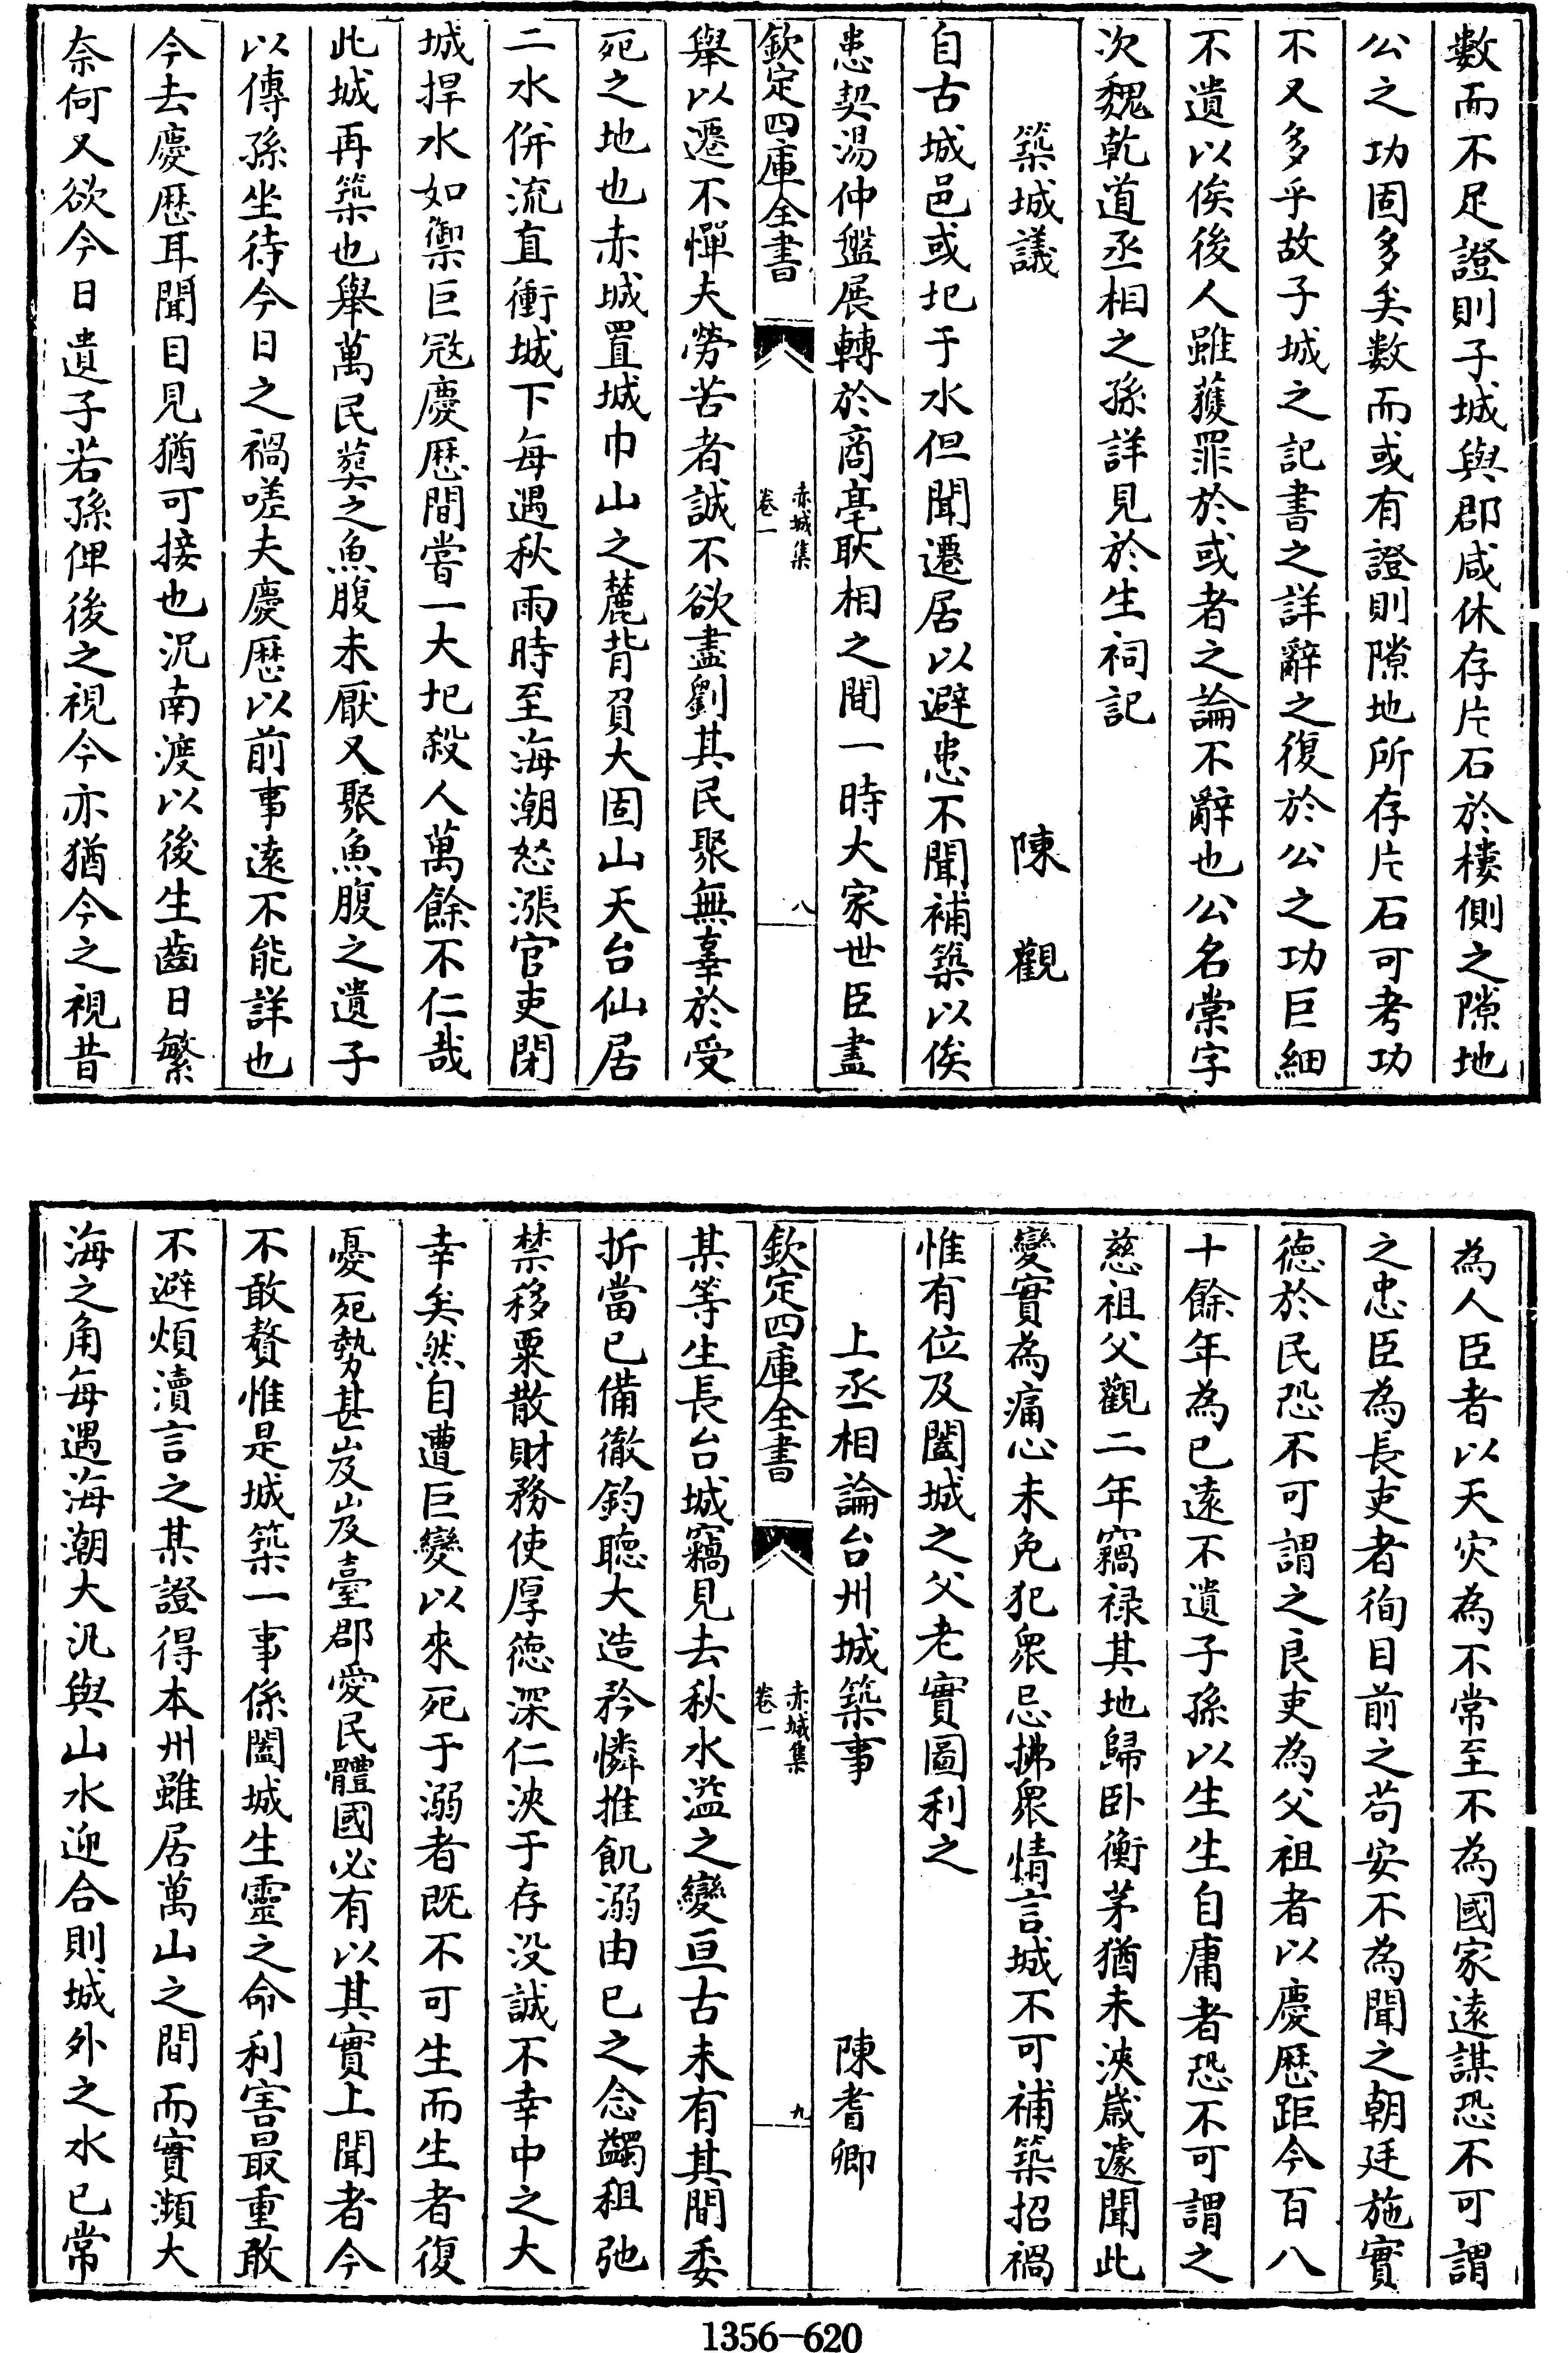 數而不足證則子城與郡咸休存片石於棲側之隙地
公之功固多矣數而或有證則隙地所存片石可考功
不又多乎故子城之記書之詳辭之復於公之功巨細
不遺以俟後人雖獲罪於或者之論不辭也公名棠字
次魏乾道丞相之孫詳見於生祠記
築城議　陳觀
自古城邑或圯于水但聞遷居以避患不聞補築以俟
患契湯仲盤展轉於商亳耿相之間一時大家世臣盡
欽定四庫全書　赤城集卷一　八
舉以遷不憚夫勞苦者誠不欲盡劉其民聚無辜於受
死之地也赤城置城巾山之麓背負大固山天台仙居
二水併流直衝城下每遇秋雨時至海潮怒漲官吏閉
城捍水如禦巨冦慶歴間嘗一大圯殺人萬餘不仁哉
此城再築也舉萬民葬之魚腹未厭又聚魚腹之遺子
以傳孫坐待今日之禍嗟夫慶歴以前事遠不能詳也
今去慶歴耳聞目見猶可接也況南渡以後生齒日繁
奈何又欲今日遺子若孫俾後之視今亦猶今之視昔
為人臣者以天灾為不常至不為國家遠謀恐不可謂
之忠臣為長吏者徇目前之苟安不為聞之朝廷施實
徳於民恐不可謂之良吏為父祖者以慶歴距今百八
十餘年為已遠不遺子孫以生生自庸者恐不可謂之
慈祖父觀二年竊禄其地歸卧衡茅猶未浹嵗遽聞此
變實為痛心未免犯衆忌拂衆情言城不可補築招禍
惟有位及闔城之父老實圖利之
上丞相論台州城築事　陳耆卿
欽定四庫全書　赤城集卷一　九
某等生長台城竊見去秋水溢之變亘古未有其間委
折當已備徹鈞聴大造矜憐推飢溺由已之念蠲租弛
禁移粟散財務使厚徳深仁浹于存没誠不幸中之大
幸矣然自遭巨變以來死于溺者既不可生而生者復
憂死勢甚岌岌臺郡愛民體國必有以其實上聞者今
不敢贅惟是城築一事係闔城生靈之命利害最重敢
不避煩瀆言之某證得本州雖居萬山之間而實瀕大
海之角每遇海潮大汎與山水迎合則城外之水已常
1356-620